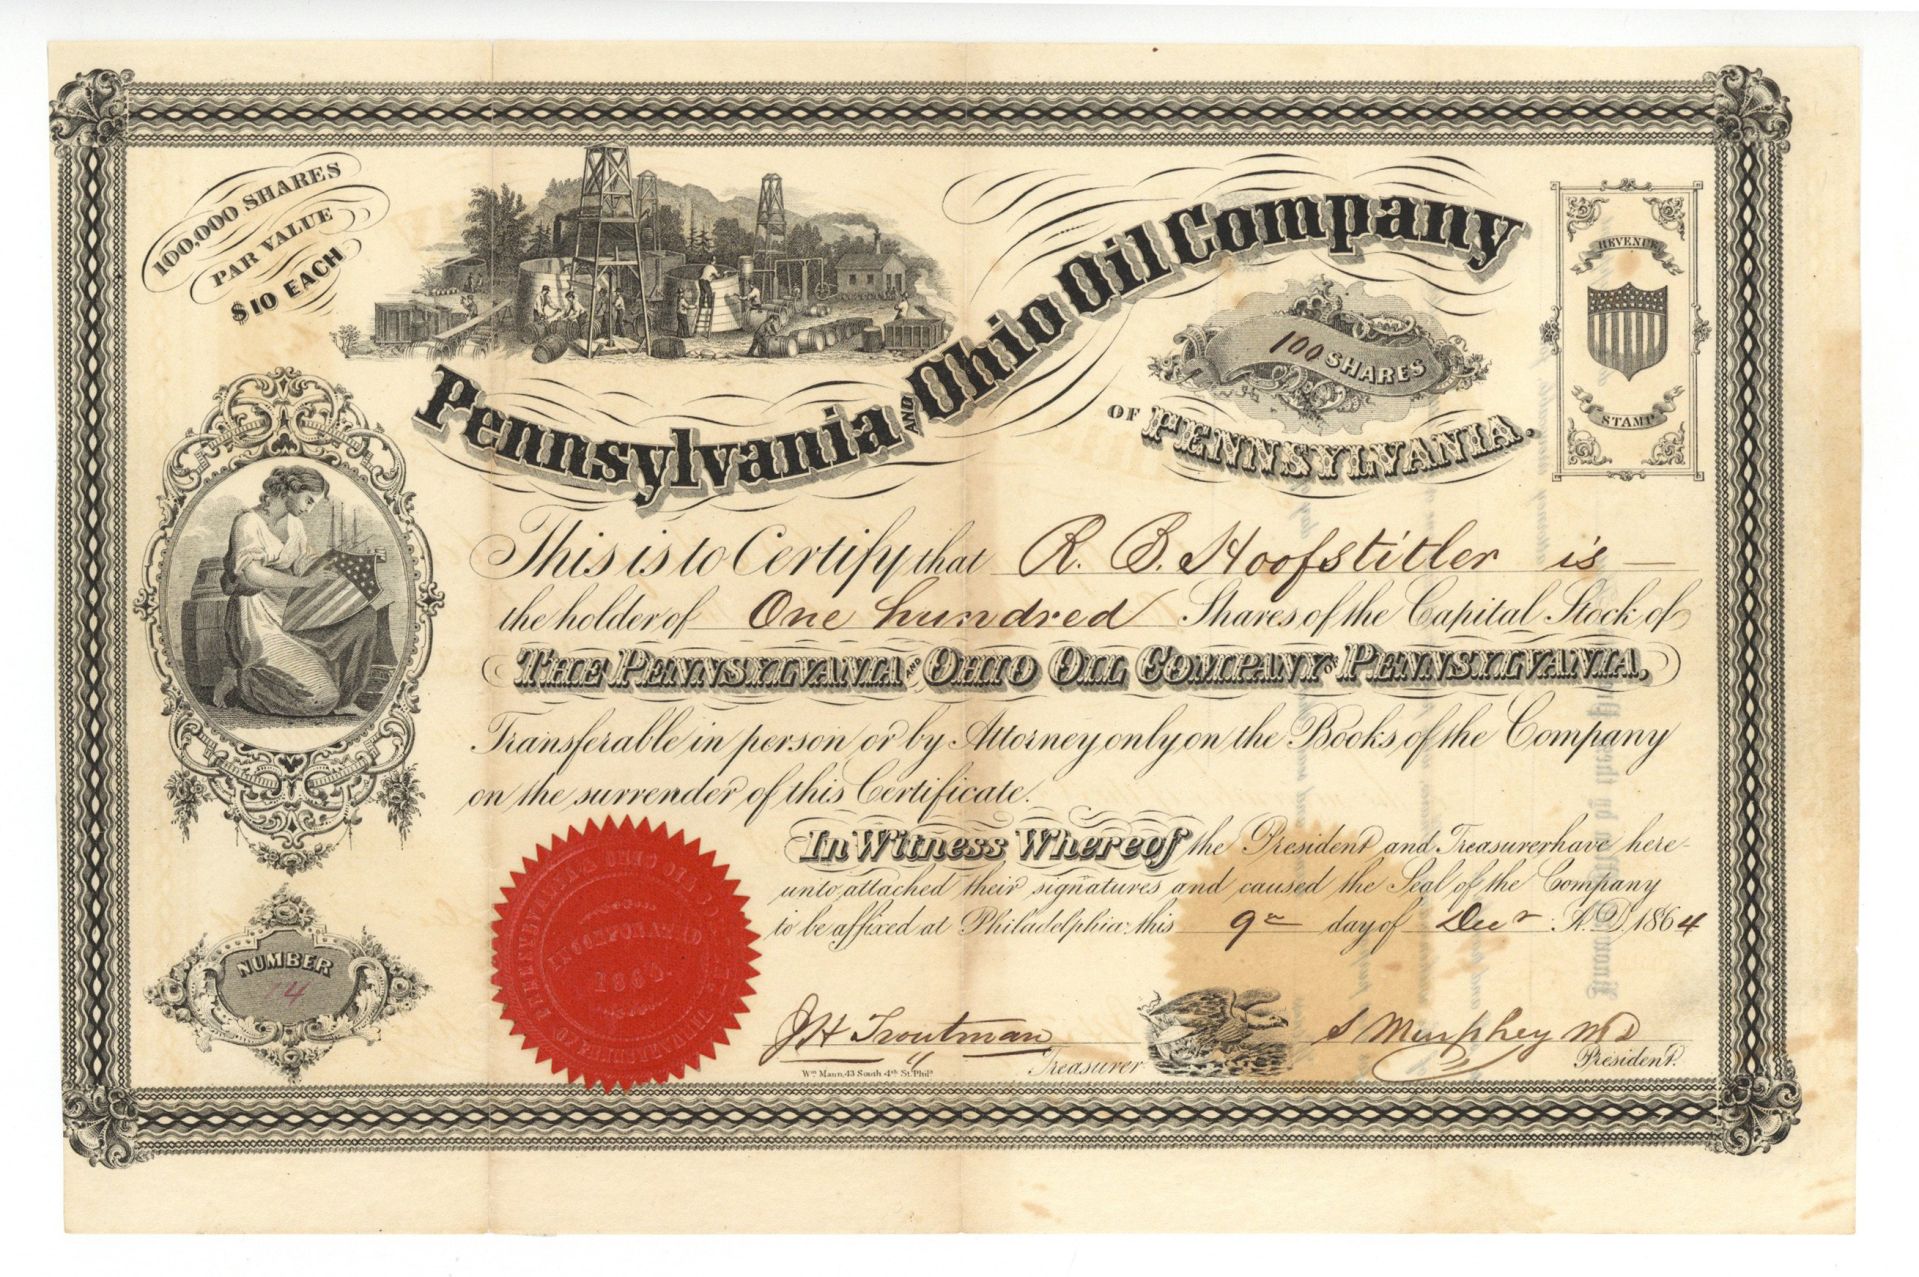 100,000 SHARES
PAR VALUE
$10 EACH
Pennsylvania AND Ohio Oil Company
100 SHARES
OF PENNSYLVANIA.
REVENUE
STAMP
This is to Certify that R. B. Hoofstitler is
the holder of One hundred Shares of the Capital Stock of
THE PENNSYLVANIA AND OHIO OIL COMPANY OF PENNSYLVANIA,
Transferable in person or by Attorney only on the Books of the Company
on the surrender of this Certificate.
In Witness Whereof the President and Treasurer have here-
unto attached their signatures and caused the Seal of the Company
to be affixed at Philadelphia this 9th day of Decr A.D. 1864
NUMBER
14
INCORPORATED
1864.
J H Troutman
Treasurer
S Murphey MD
President.
Wm Mann, 43 South 4th St. Phila